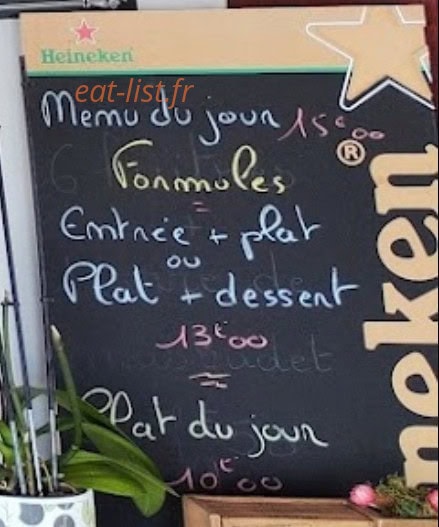 Heineken
eat-list.fr
Menu du jour 15€00
Formules
Entrée + plat
ou
Plat + dessert
13€00
Plat du jour
10€00
®
neken